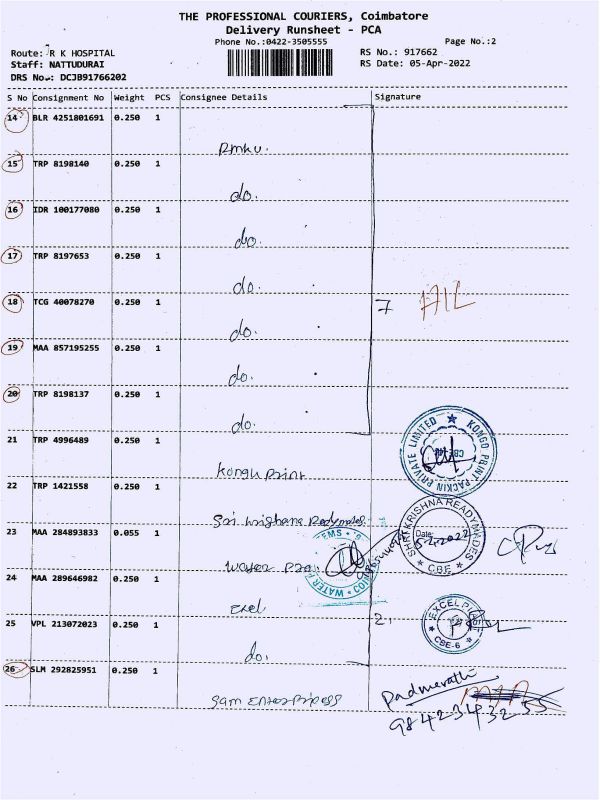 THE PROFESSIONAL COURIERS, Coimbatore
Delivery Runsheet - PCA
Phone No.:0422-3505555 Page No.:2
Route: R K HOSPITAL RS No.: 917662
Staff: NATTUDURAI RS Date: 05-Apr-2022
DRS No.: DCJB91766202
S No Consignment No Weight PCS Consignee Details Signature
14 BLR 4251801691 0.250 1
15 TRP 8198140 0.250 1
do.
16 IDR 100177080 0.250 1
do.
17 TRP 8197653 0.250 1
do.
18 TCG 40078270 0.250 1 7
do.
19 MAA 857195255 0.250 1
do.
20 TRP 8198137 0.250 1
do.
KONGO PRINT PACKIN PRIVATE LIMITED
21 TRP 4996489 0.250 1
Kongu Print
22 TRP 1421558 0.250 1
Sri Readymades
SHRI KRISHNA READYMADES
Date:
CBE
23 MAA 284893833 0.055 1
Water
24 MAA 289646982 0.250 1
Exel
25 VPL 213072023 0.250 1 2.
do.
CBE-6
26 SLM 292825951 0.250 1
Sam Enterprises
Padmavathi
9842343255